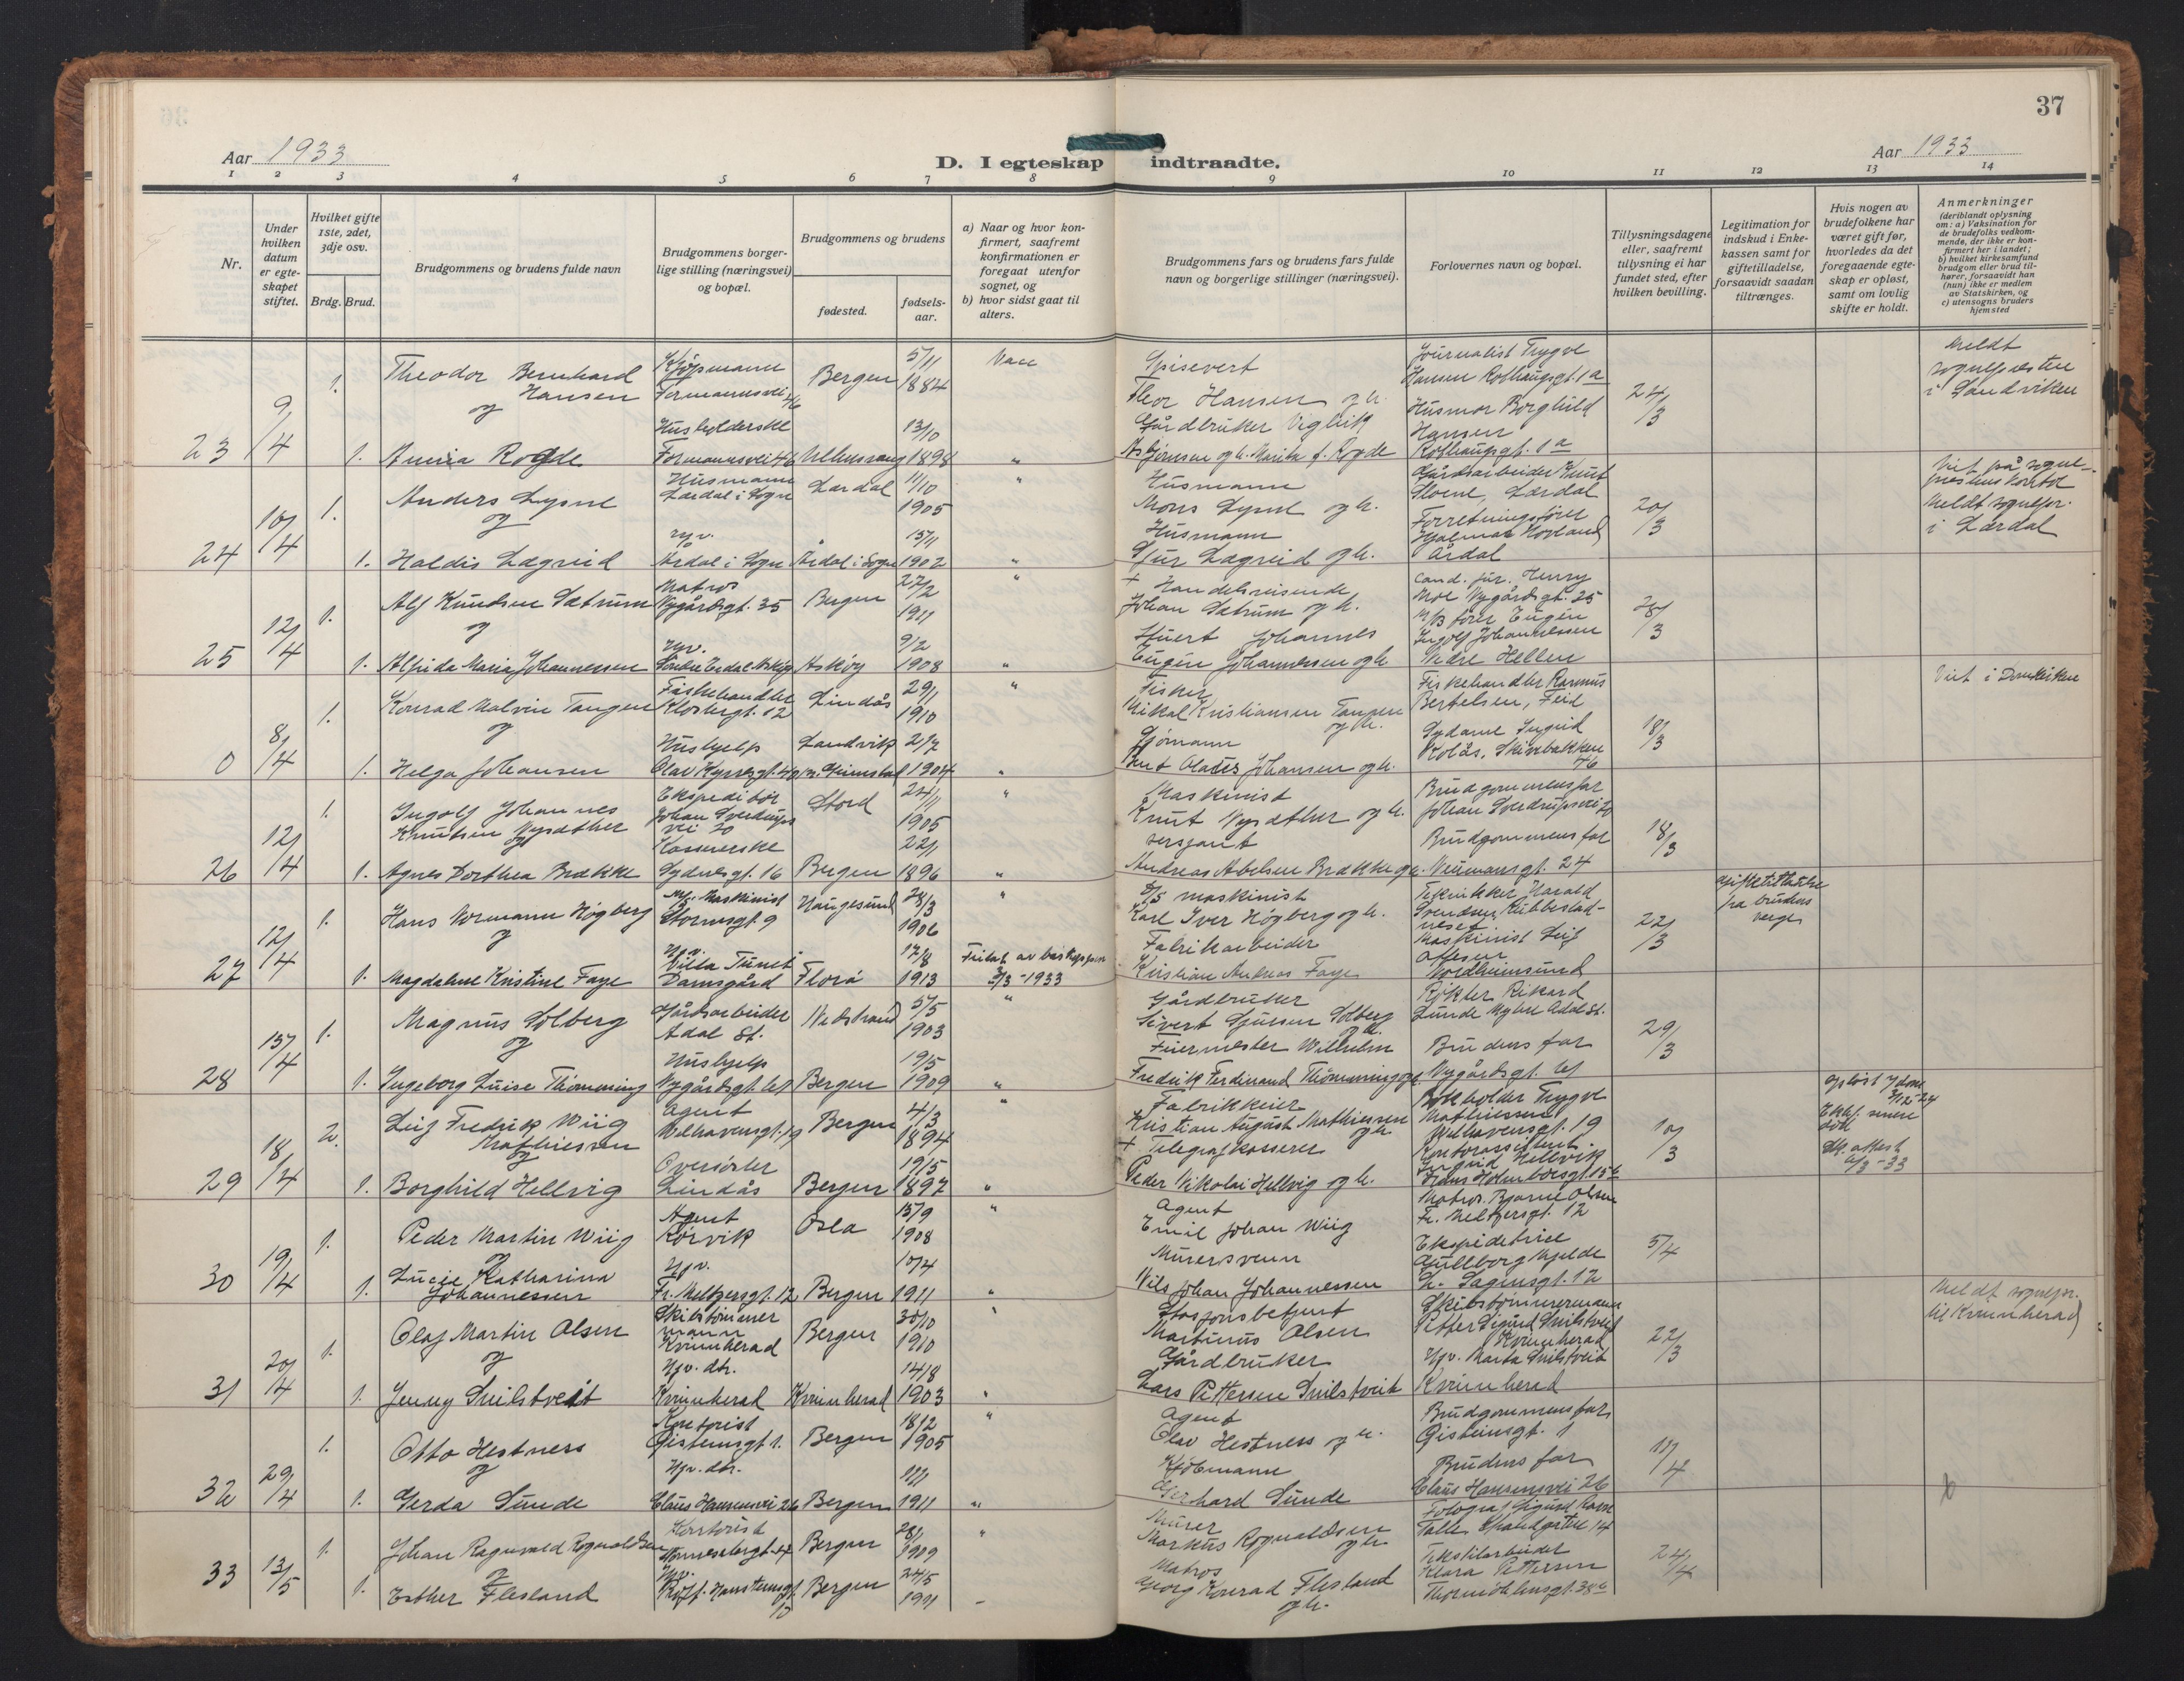 37
Aar 1933
D. I egteskap indtraadte.
Aar 1933
1 2 3 4 5 6 7 8 9 10 11 12 13 14
Nr.
Under hvilken datum er egteskapet stiftet.
Hvilket gifte 1ste, 2det, 3dje osv.
Brdg. Brud.
Brudgommens og brudens fulde navn
Brudgommens borgerlige stilling (næringsvei) og bopæl.
Brudgommens og brudens
fødested.
fødselsaar.
a) Naar og hvor konfirmert, saafremt konfirmationen er foregaat utenfor sognet, og
b) hvor sidst gaat til alters.
Brudgommens fars og brudens fars fulde navn og borgerlige stillinger (næringsvei).
Forlovernes navn og bopæl.
Tillysningsdagene eller, saafremt tillysning ei har fundet sted, efter hvilken bevilling.
Legitimation for indskud i Enkekassen samt for giftetilladelse, forsaavidt saadan tiltrænges.
Hvis nogen av brudefolkene har været gift før, hvorledes da det foregaaende egteskap er opløst, samt om lovlig skifte er holdt.
Anmerkninger
(deriblandt oplysning om: a) Vaksination for de brudefolks vedkommende, der ikke er konfirmert her i landet; b) hvilket kirkesamfund brudgom eller brud tilhører, forsaavidt han (hun) ikke er medlem av Statskirken, og c) utensogns bruders hjemsted
23 9/4 1. Theodor Bernhard Hansen Kjøpmann Formannsvei 46 Bergen 5/11 1884
Spisevert Theor Hansen og h. Journalist Trygve Hansen Rothaugsgt. 1a 24/3
Meldt sognepresten i Sandviken
og
1. Anna Rogde Husholderske Formannsvei 46 Ullensvang 13/10 1898
Gårdbruker Viglik Asbjørnsen og h. Marita f. Rogde Husmor Borghild Hansen Rothaugsgt. 1a
24 10/4 1. Anders Lysne Husmann Lærdal i Sogn Lærdal 11/10 1905
Husmann Mons Lysne og h. Gårdsarbeider Knut Lærdal 20/3
Viet på sogneprestens kontor Meldt sognepr. i Lærdal
og
1. Haldis Lægreid Hjv. Årdal i Sogn Årdal i Sogn 15/11 1902
Husmann Sjur Lægreid og h. Forretningsfører Hjalmar Hovland Årdal
25 12/4 1. Alf Knudsen Sætrum Matros Nygårdsgt. 35 Bergen 27/2 1911
+ Handelsreisende Johan Sætrum og h. Cand. jur. Henry Moe Nygårdsgt. 25 28/3
og
1. Alfride Maria Johannessen Hjv. Askøy 9/2 1908
Johannes Eugen Johannessen og h. M/B fører Eugen Ingolf Johannessen Nedre Hellen
0 8/4 1. Konrad Malvin Tangen Fiskehandler Klostergt. 12 Lindås 29/1 1910
Fisker Mikal Kristiansen Tangen og h. Fiskehandler Rasmus Bertelsen, Feid 18/3
Viet i Domkirken
og
1. Helga Johansen Hushjelp Olav Kyrresgt. 40 Landvik pr. Grimstad 2/7 1904
Sjømann Johansen og h. Sydame Ingrid Kolås, Skivebakken 46
26 12/4 1. Ingolf Johannes Knutsen Nysæther Ekspeditør Johan Sverdrups vei 20 Stord 24/11 1905
Maskinist Knut Nysæther og h. Brudgommens far Johan Sverdrupsvei 20 18/3
og
1. Agnes Dorthea Brække Kassererske Sydnesgt. 16 Bergen 22/1 1896
Sersjant Andreas Abelsen Brække og h. Brudgommens far Neumannsgt. 24
27 12/4 1. Hans Normann Högberg Maskinist Stormsgt 9 Haugesund 28/3 1906
D/S maskinist Karl Iver Högberg og h. Tekniker Harald Svendsen Kubbeslad-neset 22/3
Giftetillatelse fra brudens verge
og
1. Magdalene Kristine Faye Hjv. Villa Tunet Damsgård Florø 17/8 1913 Fritat av biskopen 2/3 - 1933
Fabrikarbeider Kristian Andreas Faye Maskinist Leif Nordheimsund
28 15/4 1. Magnus Solberg Gårdsarbeider Adal St. Nedstrand 5/5 1903
Gårdbruker Sivert Sjursen Solberg og h. Røkter Rikard Lunde Myhre Adal St. 29/3
og
1. Ingeborg Luise Thömming Hushjelp Nygårdsgt. Bergen 19/5 1909
Feiermester Wilhelm Fredrik Ferdinand Thömming og h. Brudens far Nygårdsgt.
29 18/4 2. Leif Fredrik Wiig Mathiessen Agent Welhavensgt. 19 Bergen 4/3 1894
Fabrikkeier Kristian August Mathiessen og h. Bokholder Trygve Mathiessen Welhavensgt. 19 10/3
og
1. Borghild Hellvig Lindås Bergen 19/5 1897
+ Telegrafkasserer Peder Nikolai Hellvig og h. Kontorassistent Ingrid Hellvik
30 19/4 1. Peder Martin Wiig Agent Rørvik Oslo 15/9 1908
Agent Emil Johan Wiig Matros. Bjarne Olsen Fr. Meltzersgt. 12 5/4
og
1. Lucie Katharina Johannessen Hjv. Fr. Meltzersgt. 12 Bergen 10/4 1911
Murersvenn Nils Johan Johannessen Ekspeditrise Gullborg Mjelde L. Sagensgt. 12
31 20/4 1. Olaf Martin Olsen Skibstømmermann Kvinnherad Bergen 30/10 1910
Stasjonsbetjent Martinus Olsen Skibstømmermann Petter Sigurd Snilstveit Kvinnherad 22/3
Meldt sognepr. til Kvinnherad
og
1. Jenny Snilstveit Hjv. dtr. Kvinnherad Kvinnherad 14/8 1903
Gårdbruker Lars Pettersen Snilstveit Hjv. Marta Snilstveit Kvinnherad
32 29/4 1. Otto Hestness Kontorist Gisteinsgt 1. Bergen 18/2 1905
Agent Olav Hestness og h. Brudgommens far Gisteinsgt. 1 11/4
og
1. Gerda Sunde Hjv. dtr. Claus Hansensvei 26 Bergen 1/11 1911
Kjøbmann Gerhard Sunde Brudens far Claus Hansensvei 26
33 13/5 1. Johan Ragnvald Rognaldsen Kontorist Bergen 28/1 1909
Murer Markus Rognaldsen og h. Fotograf Sigurd 24/4
og
1. Esther Flesland Hjv. Bergen 24/5 1911
Matros Georg Konrad Flesland og h. Tekstilarbeider Klara Pettersen Thormøhlensgt. 38b